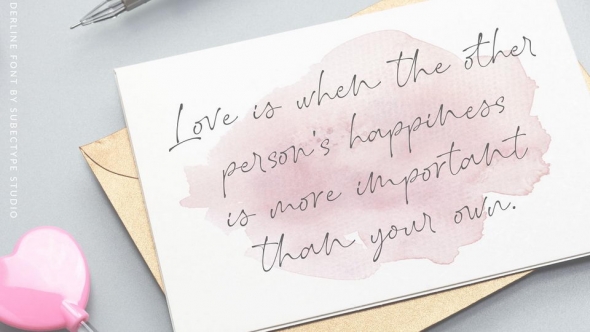 Love is when the other
person's happiness
is more important
than your own.
DERLINE FONT BY SUBECTYPE STUDIO